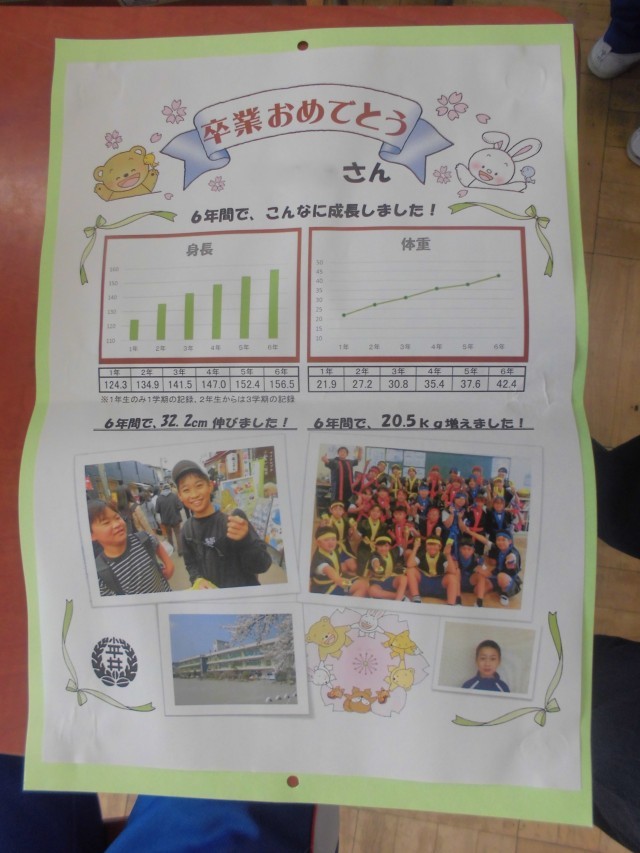 卒業おめでとう
さん
6年間で、こんなに成長しました！
身長
160
150
140
130
120
110
1年 2年 3年 4年 5年 6年
1年 2年 3年 4年 5年 6年
124.3 134.9 141.5 147.0 152.4 156.5
※1年生のみ1学期の記録、2年生からは3学期の記録
体重
50
45
40
35
30
25
20
15
10
1年 2年 3年 4年 5年 6年
1年 2年 3年 4年 5年 6年
21.9 27.2 30.8 35.4 37.6 42.4
6年間で、32.2cm 伸びました！
6年間で、20.5kg増えました！
小平井